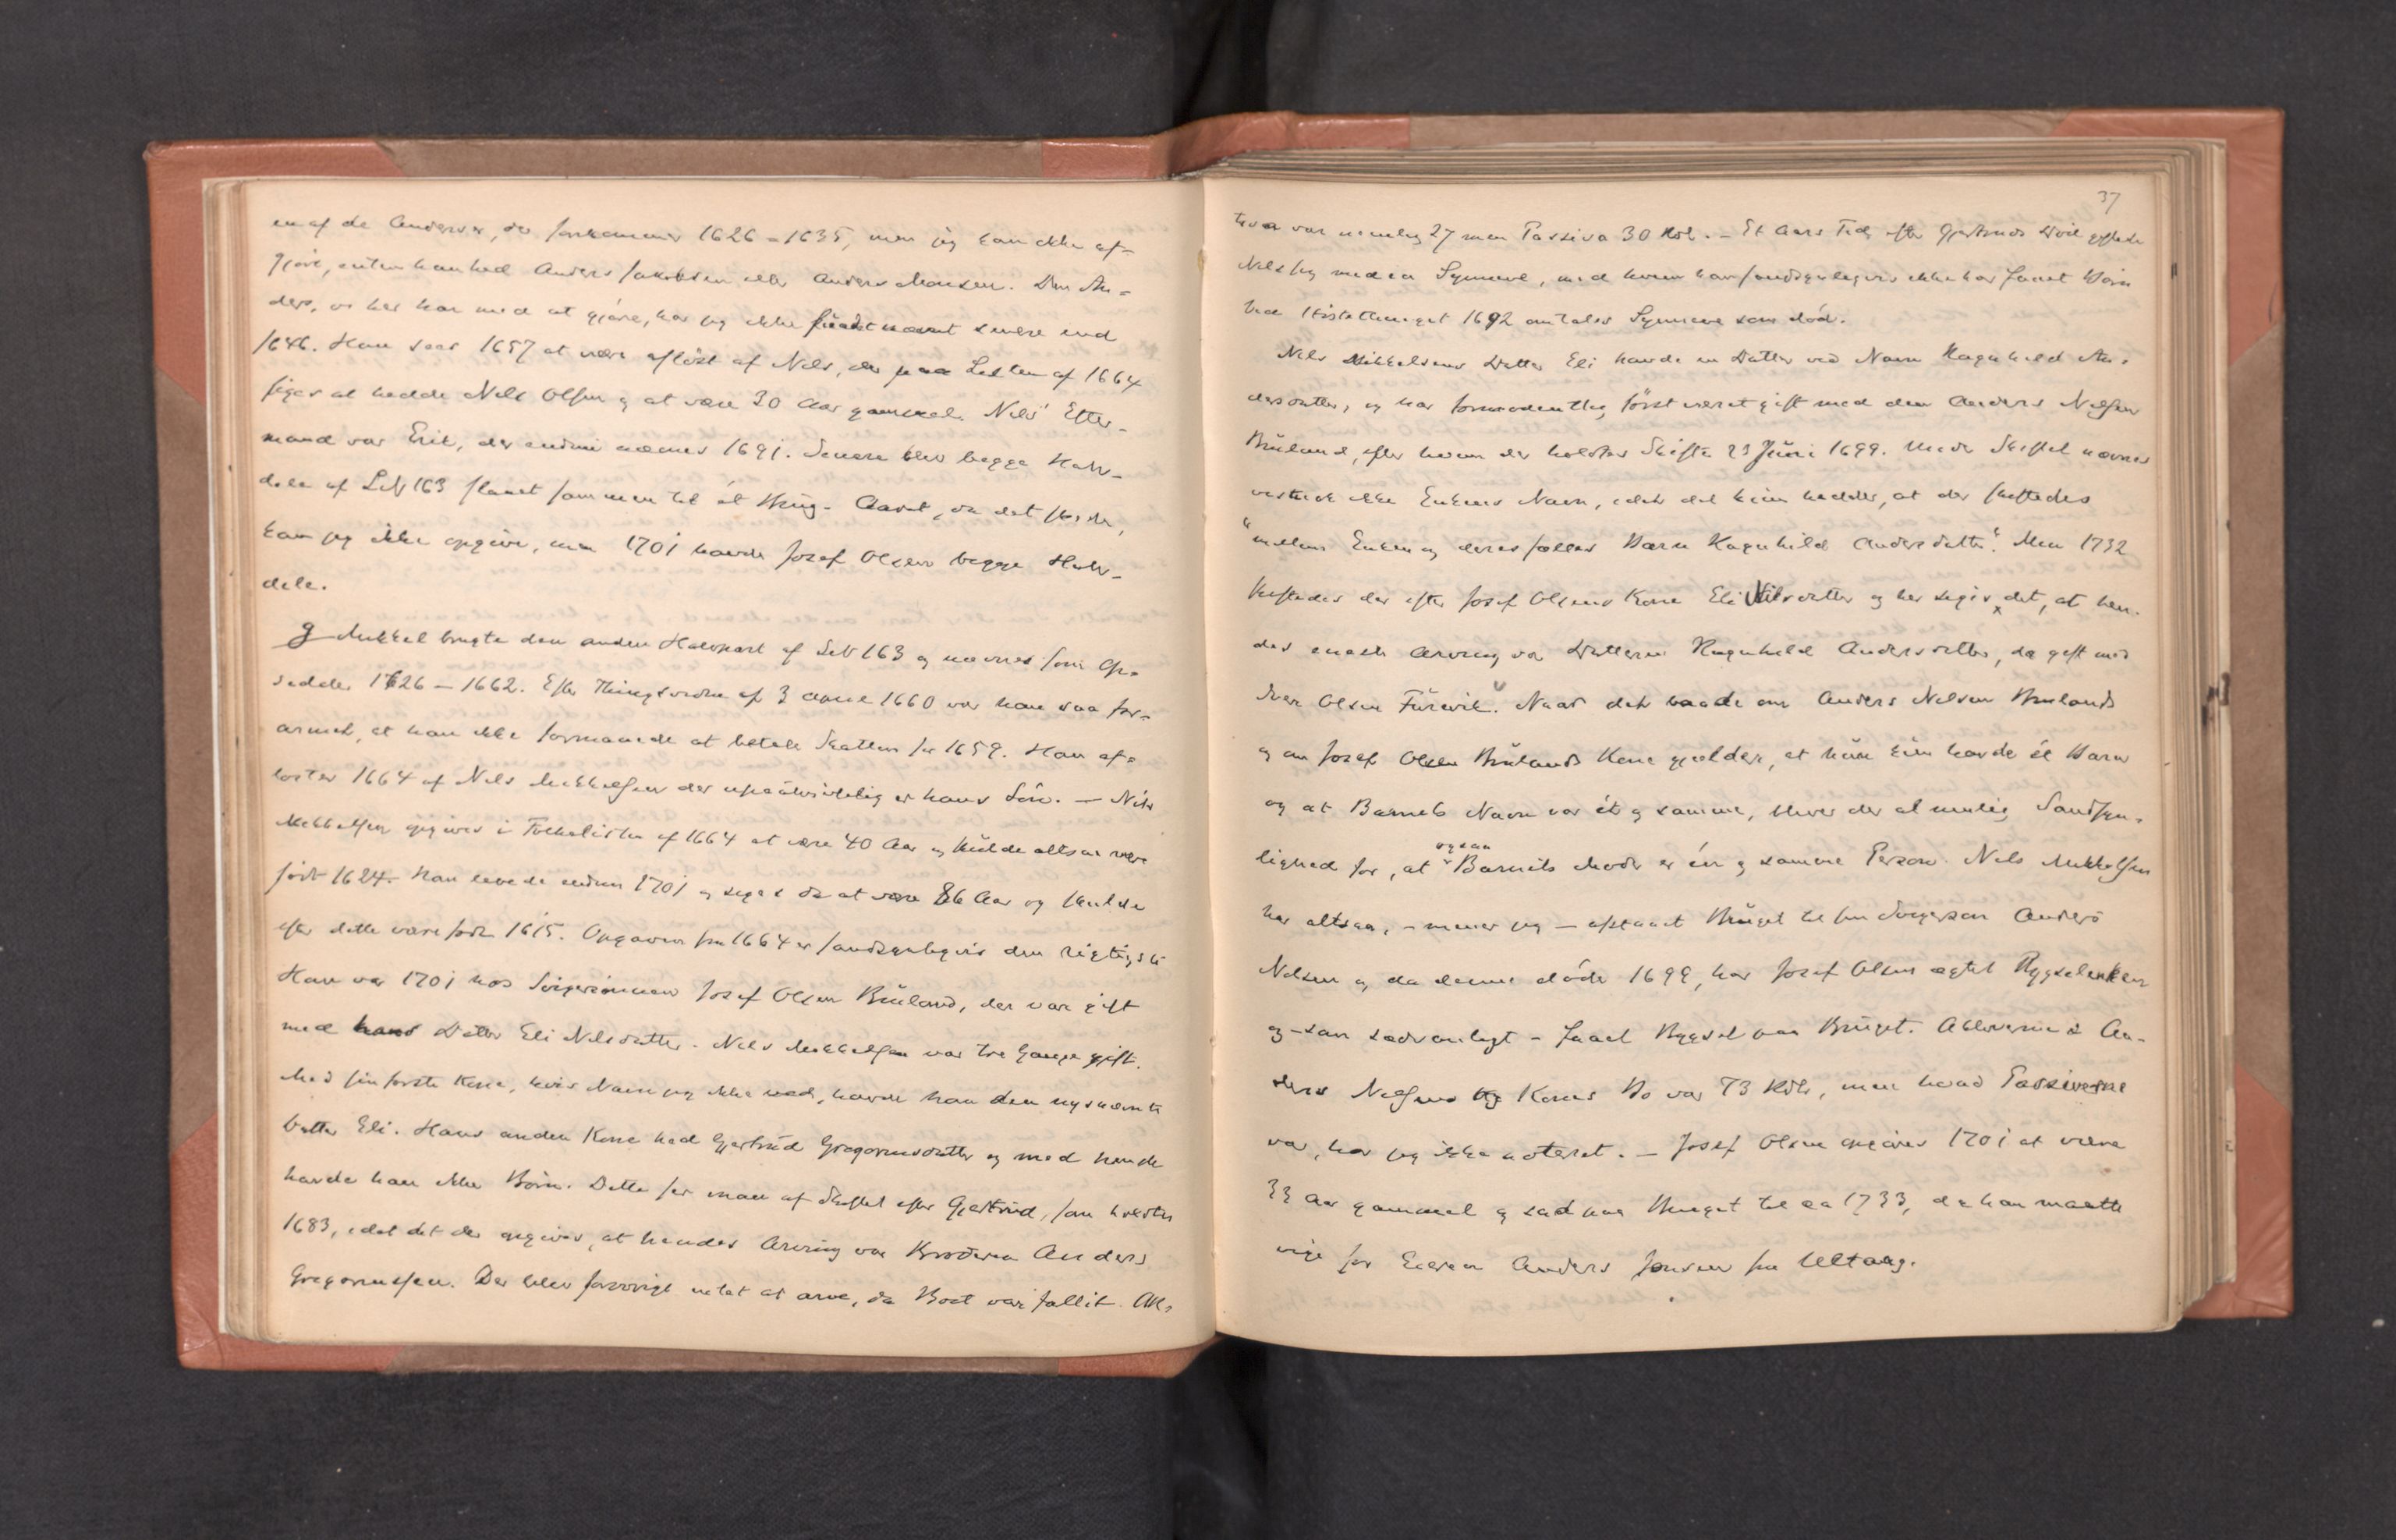 en af de Anderser, der forekommer 1626-1635, men jeg kan ikke af-
gjøre, enten han hed Anders Jakobsen eller Anders Monsen. Den An-
ders, vi her har med at gjøre, har jeg ikke fundet nævnt senere end
1646. Han sees 1657 at være afløst af Nels, der paa Listen af 1664
siges at hedde Nels Olsen og at være 30 Aar gammel. Nels' Efter-
mand var Erik, der endnu nævnes 1691. Senere blev begge Halv-
dele af Lnr 163 slaaet sammen til ét Brug. Aaret, da det skede,
kan jeg ikke opgive, men 1701 havde Josef Olsen begge Halv-
dele.
Mikkel brugte den anden Halvpart af Lnr 163 og nævnes som Op-
sidder 1626 - 1662. Efter Thingsvidne af 3 April 1660 var han saa for-
armet, at han ikke formaaede at betale Skatten for 1659. Han af-
løstes 1664 af Nels Mikkelsen der upaatvivlelig er hans Søn. - Nels
Mikkelsen opgives i Folkelisten af 1664 at være 40 Aar og skulde altsaa være
født 1624. Han levede endnu 1701 og siges da at være 86 Aar og skulde
efter dette være født 1615. Opgaven fra 1664 er sandsynligvis den rigtigste
Han var 1701 hos Svigersønnen Josef Olsen Bruland, der var gift
med hans Datter Eli Nelsdatter. Nels Mikkelsen var tre Gange gift.
Med sin første Kone, hvis Navn jeg ikke ved, havde han den nysnævnte
Datter Eli. Hans anden Kone hed Gjertrud Gregoriusdatter og med hende
havde han ikke Børn. Dette ser man af Skiftet efter Gjertrud, som holdtes
1683, idet det der opgives, at hendes Arving var Broderen Anders
Gregoriussen. Der blev forøvrigt intet at arve, da Boet var fallit. Ak-
37
tiva var nemlig 27 men Passiva 30 Rdl. - Et Aars Tid efter Gjertruds Død giftede
Nels sig med en Synneve, med hvem han sandsynligvis ikke har faaet Børn
Ved Høstethinget 1692 omtales Synneve som død.
Nels Mikkelsens Datter Eli havde en Datter ved Navn Ragnhild An-
dersdatter, og har formodentlig først været gift med den Anders Nelsen
Bruland, efter hvem der holdtes Skifte 23 Juni 1699. Under Skiftet nævnes
vistnok ikke Enkens Navn, idet det kun hedder, at der skiftedes
"mellem Enken og deres fælles Barn Ragnhild Andersdatter". Men 1732
skiftedes der efter Josef Olsens Kone Eli Nilsdatter og her siges det, at hen-
des eneste Arving var Datteren Ragnhild Andersdatter, da gift med
Iver Olsen Furevik". Naar det baade om Anders Nelsen Brulands
og om Josef Olsen Brulands Kone gjælder, at hun kun havde ét Barn
og at Barnets Navn var ét og samme, bliver der al mulig Sandsyn-
lighed for, at ogsaa Barnets Moder er én og samme Person. Nels Mikkelsen
har altsaa, - mener jeg - afstaaet Bruget til sin Svigersøn Anders
Nelsen og da denne døde 1699, har Josef Olsen ægtet Bygselenken
og - som sædvanligt - faaet Bygsel paa Bruget. Aktiverne i An-
ders Nelsens og Kones Bo var 73 Rdlr, men hvad Passiverne
var, har jeg ikke noteret. - Josef Olsen opgives 1701 at være
33 Aar gammel og sad paa Bruget til ca 1733, da han maatte
vige for Eieren Anders Jonsen fra Ultaag.